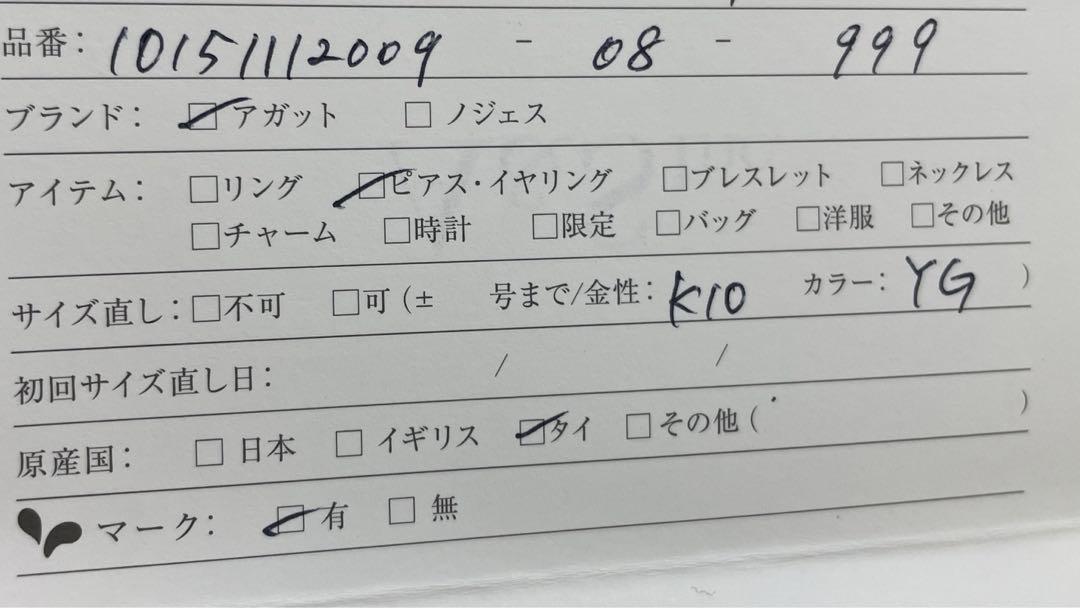 品番： 10151112009 - 08 - 999
ブランド： ☑アガット □ノジェス
アイテム： □リング ☑ピアス・イヤリング □ブレスレット □ネックレス
□チャーム □時計 □限定 □バッグ □洋服 □その他
サイズ直し： □不可 □可 (± 号まで/金性： K10 カラー： YG )
初回サイズ直し日： / /
原産国： □日本 □イギリス ☑タイ □その他 ( )
マーク： ☑有 □無